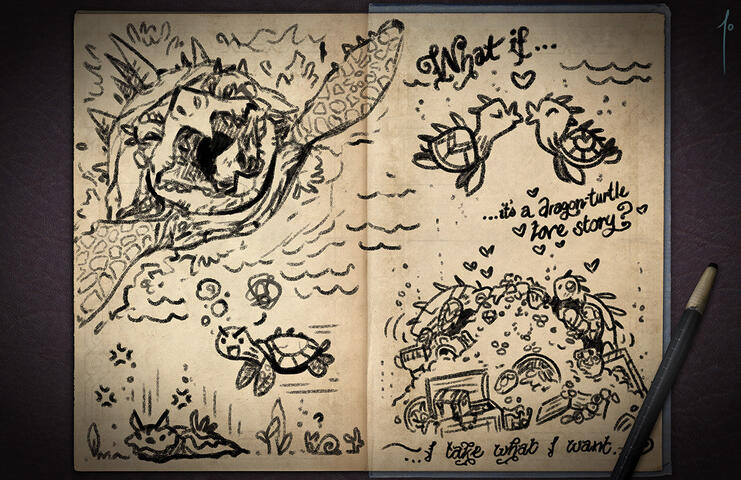 What if...
...it's a dragon-turtle
love story?
...I take what I want.